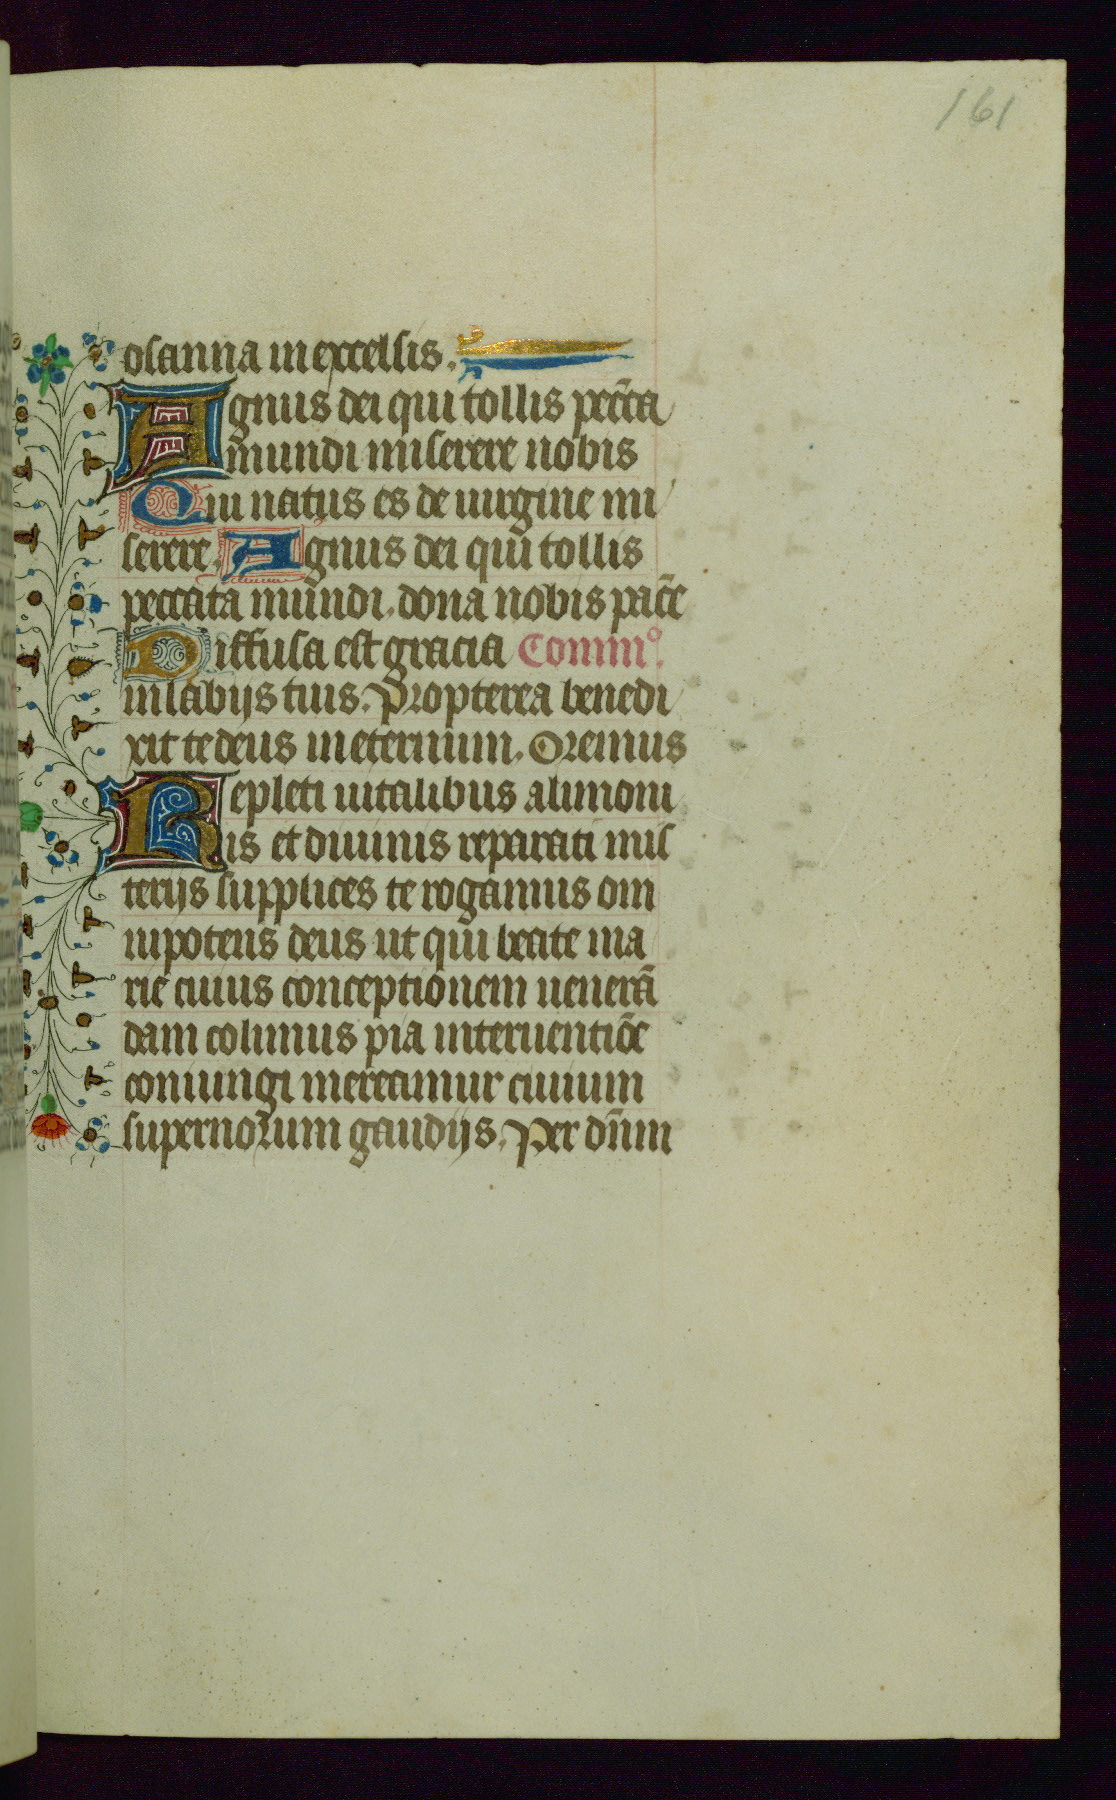 161
osanna in excelsis.
Agnus dei qui tollis pecc̄ta
mundi miserere nobis
Qui natus es de uirgine mi
serere. Agnus dei qui tollis
peccata mundi. dona nobis pacē
Diffusa est gracia Commº.
in labijs tuis. Propterea benedi
xit te deus in eternum. Oremus
Repleti uitalibus alimoni
is et diuinis reparati mis
terijs supplices te rogamus om
nipotens deus ut qui beate ma
rie cuius conceptionem uenerā
dam colimus pia interuentiōe
coniungi mereamur ciuium
supernorum gaudijs. Per dn̄m